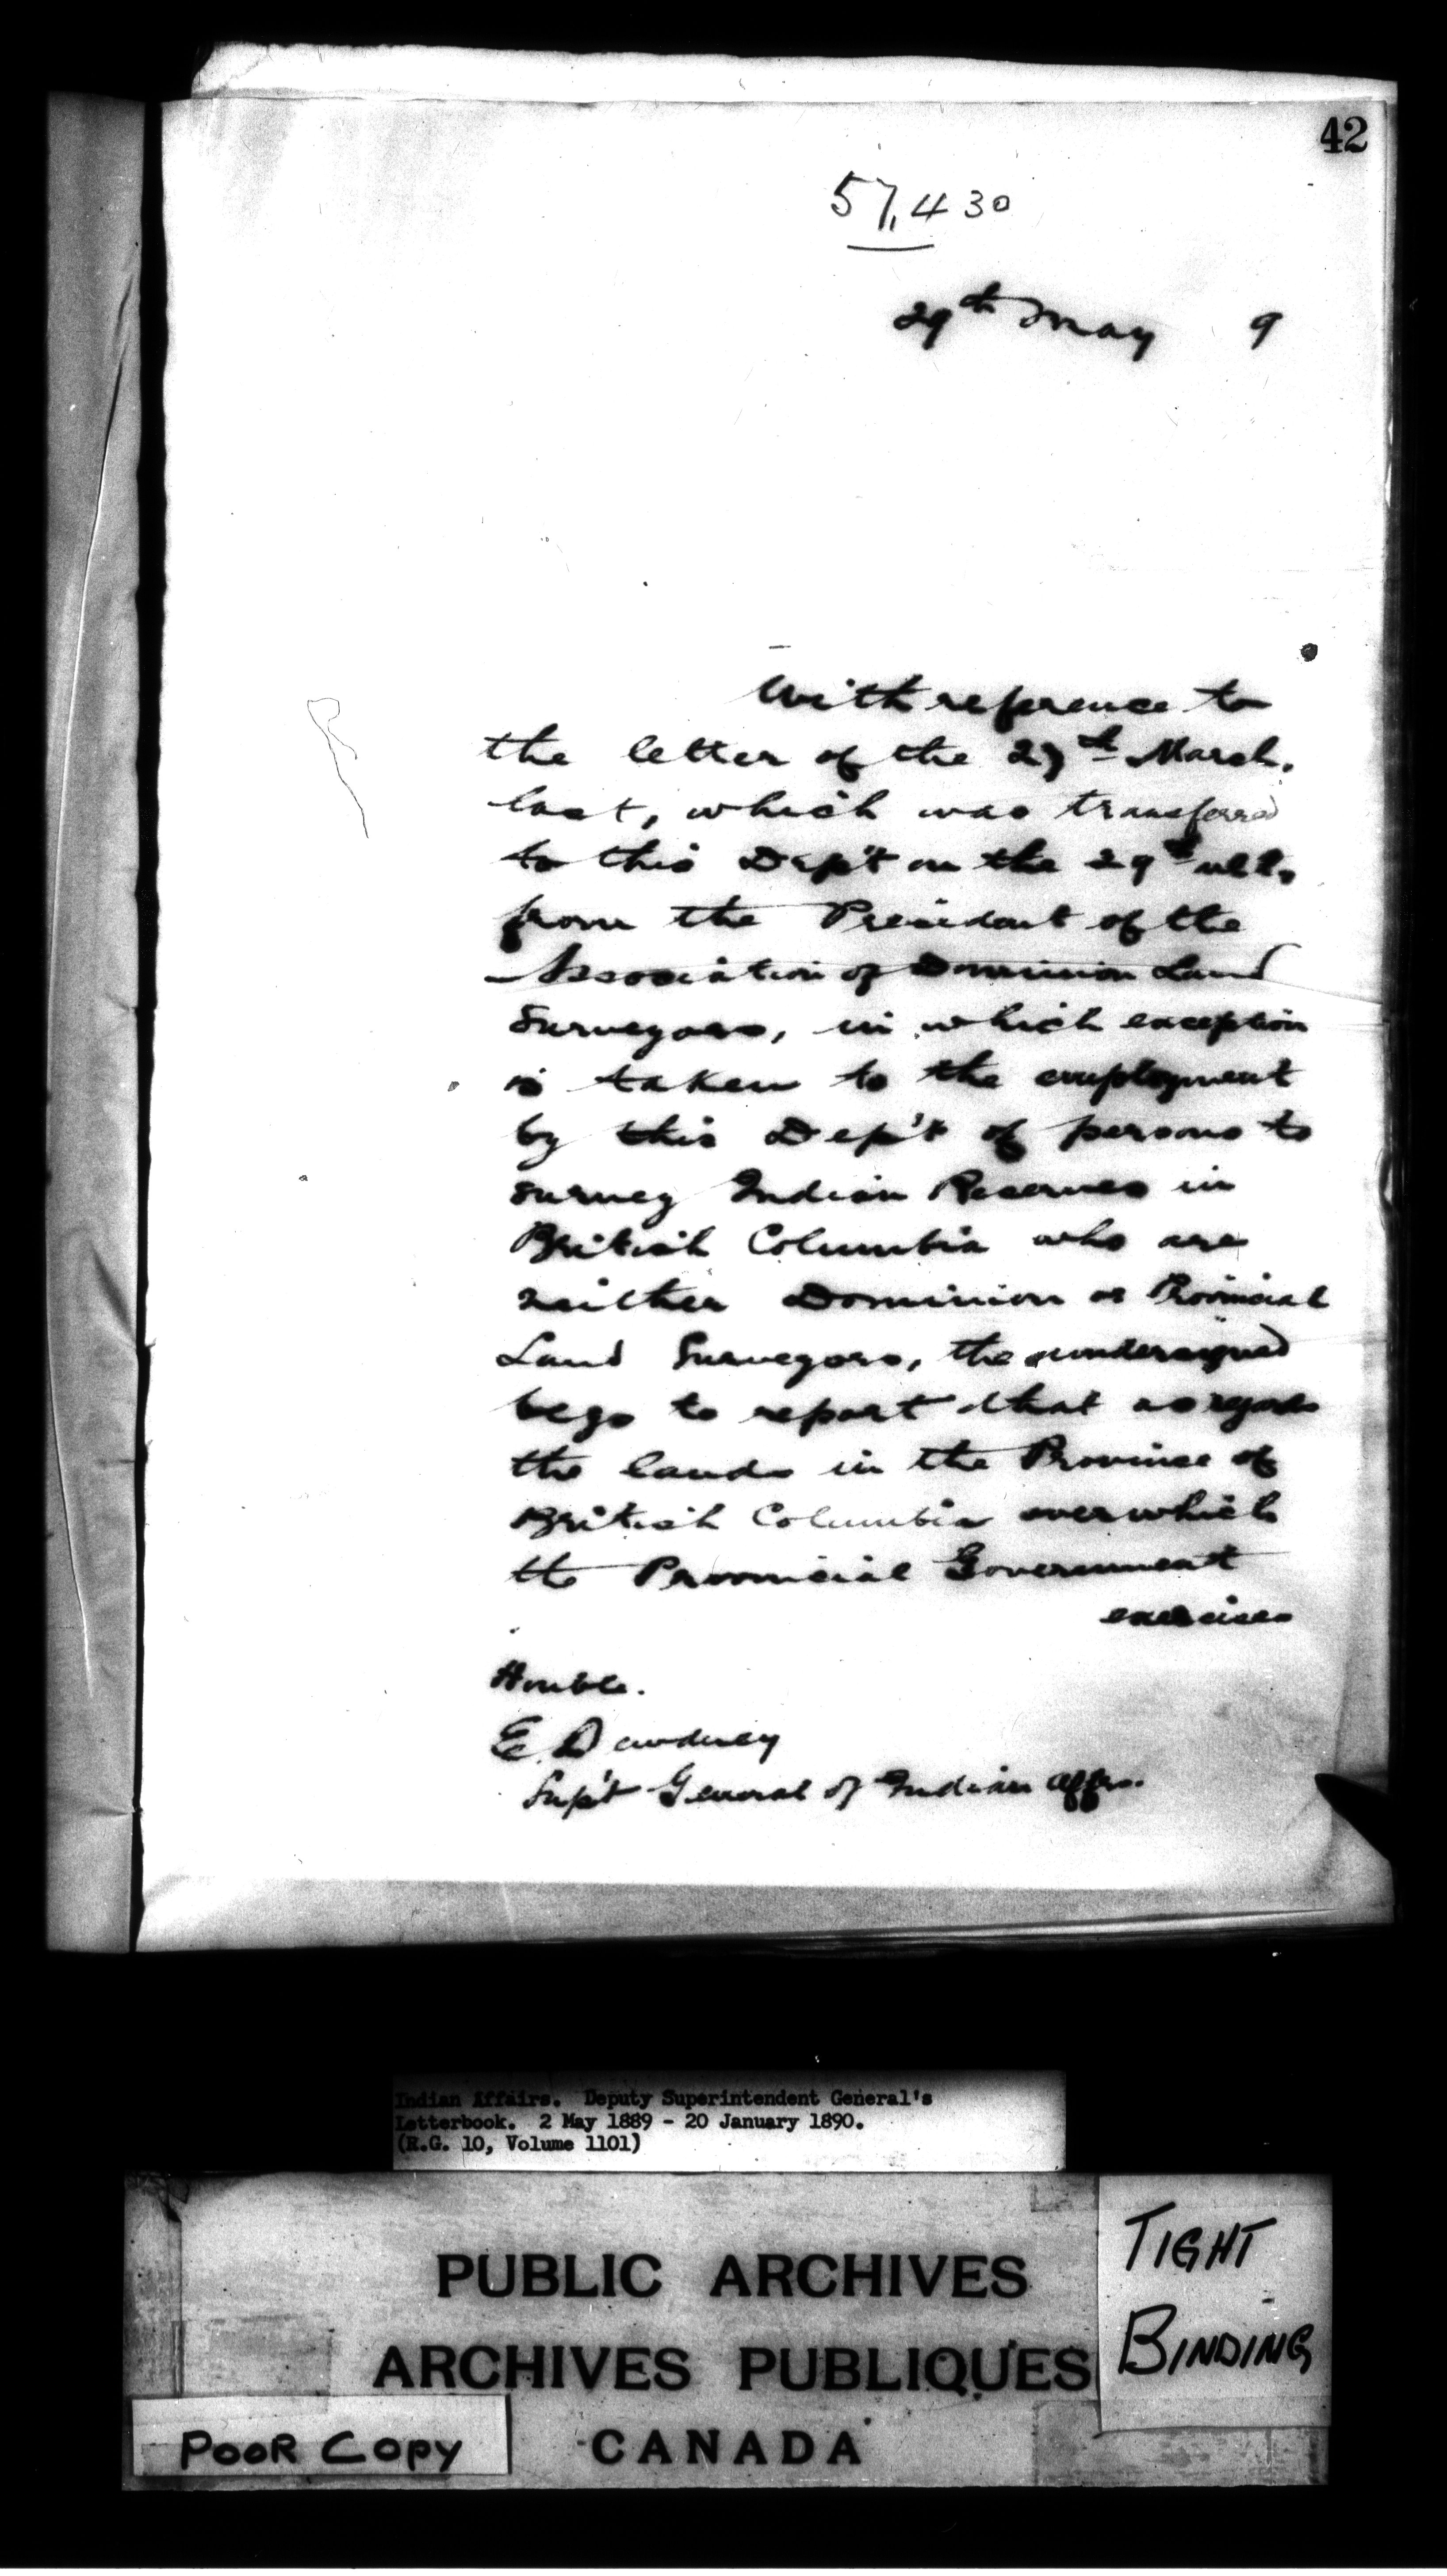 42
57,430
29th May 9
With reference to
the letter of the 27th March
last, which was transferred
to this Dep't on the 29th ult.
from the President of the
Association of Dominion Land
Surveyors, in which exception
is taken to the employment
by this Dep't of persons to
survey Indian Reserves in
British Columbia who are
neither Dominion or Provincial
Land Surveyors, the undersigned
begs to report that as regards
the lands in the Province of
British Columbia over which
the Provincial Government
exercises
Honble.
E. Dewdney
Sup't General of Indian Affrs.
Indian Affairs. Deputy Superintendent General's
Letterbook. 2 May 1889 - 20 January 1890.
(R.G. 10, Volume 1101)
PUBLIC ARCHIVES
ARCHIVES PUBLIQUES
CANADA
TIGHT
BINDING
POOR COPY